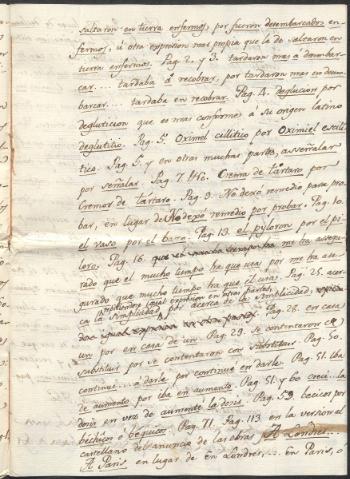 saltaron en tierra enfermos, por fueron desembarcados en-
fermos, ú otra expresion mas propia que la de saltaron en
tierra enfermos. Pag. 2. y 3. tardaron mas á desembar-
car.... tardaba á recobrar, por tardaron mas en desem-
barcar.... tardaba en recobrar. Pag. 4. deglucion por
deglutición que es mas conforme á su origen latino
deglutitio. Pag. 5. Oximel cillitico por Oximiel escilí-
tica. Pag. 5. y en otras muchas partes, asseñalar
por señalar. Pag. 7. Crema de tártaro por
Cremor de tártaro. Pag. 9. No dexó remedio para pro-
bar, en lugar de No dexó remedio por probar. Pag. 10.
el vaso por el bazo. Pag. 13. el pyloron por el pí-
loro. Pag. 16. me ha assegu-
rado que el mucho tiempo ha que usa por me ha ase-
gurado que mucho tiempo ha que el usa. Pag. 25. acer-
ca la simplicidad por acerca de la simplicidad,
Pag. 28. en casa
un por en casa de un. Pag. 29. se contentaron á
substituir por se contentaron con substituir. Pag. 50.
continue... á darle por continue en darle. Pag. 51. iba
de aumento por iba en aumento. Pag. 51. y 60 creci... la
dosis en vez de aumenté la dosis. Pag. 59. becicos por
béchicos ó béquicos. Pag. 71. Pag. 113 en la version al
castellano del anuncio de las obras A Londres...
A Paris en lugar de en Londres... en Paris, ó